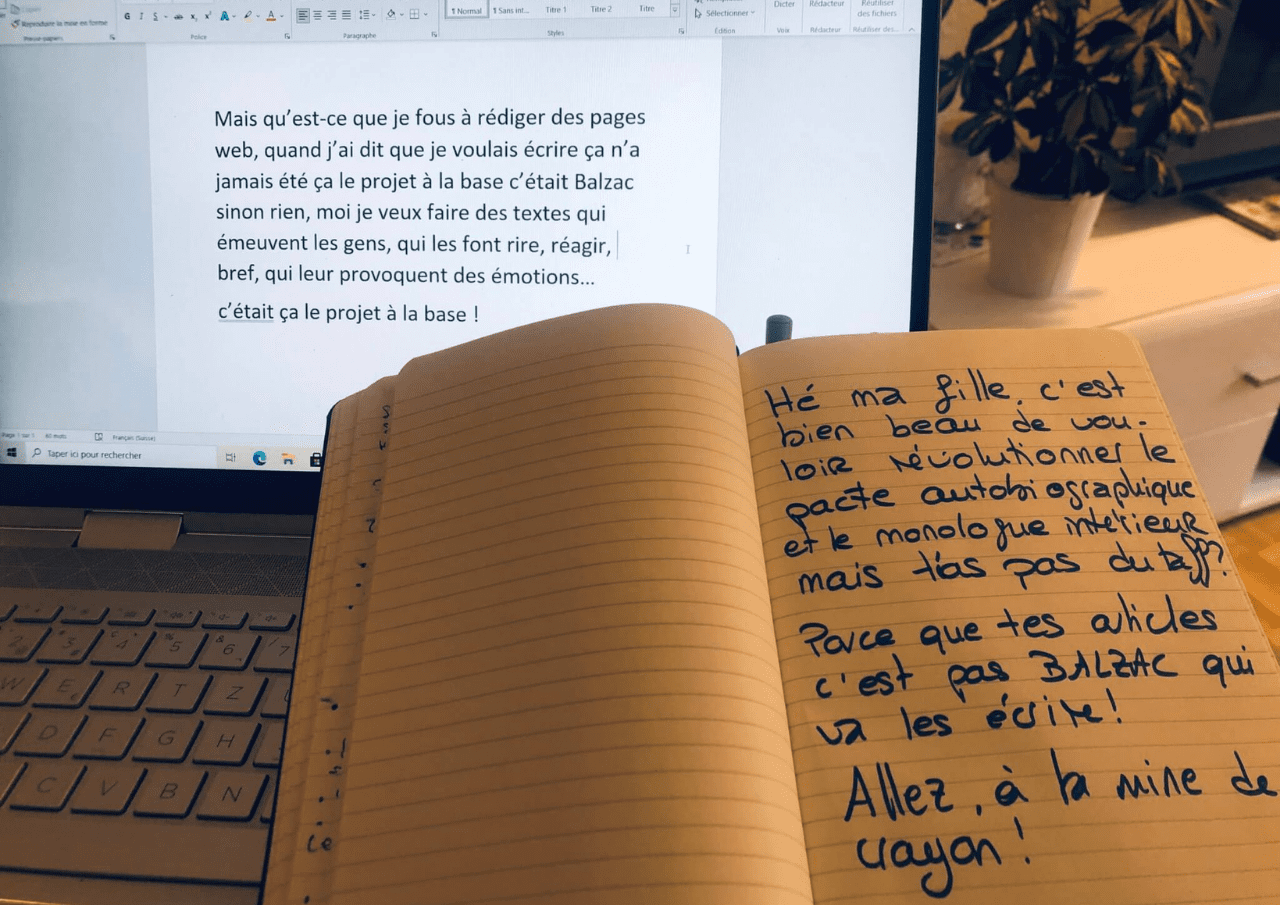 Reproduire la mise en forme
Presse-papiers
G I S ab x, x² A A
Police
Paragraphe
¶ Normal ¶ Sans int... Titre 1 Titre 2 Titre
Styles
Sélectionner
Édition
Dicter
Voix
Rédacteur
Rédacteur
Réutiliser
des fichiers
Réutiliser des...
Mais qu’est-ce que je fous à rédiger des pages
web, quand j’ai dit que je voulais écrire ça n’a
jamais été ça le projet à la base c’était Balzac
sinon rien, moi je veux faire des textes qui
émeuvent les gens, qui les font rire, réagir,
bref, qui leur provoquent des émotions...
c’était ça le projet à la base !
Page 1 sur 1 60 mots Français (Suisse)
Taper ici pour rechercher
Hé ma fille, c'est
bien beau de vou-
loir révolutionner le
pacte autobiographique
et le monologue intérieur
mais t'as pas du taff?
Parce que tes articles
c'est pas BALZAC qui
va les écrire!
Allez, à la mine de
crayon!
2 3 4 5 6 7
W E R T Z
D F G H
C V B N
Ce